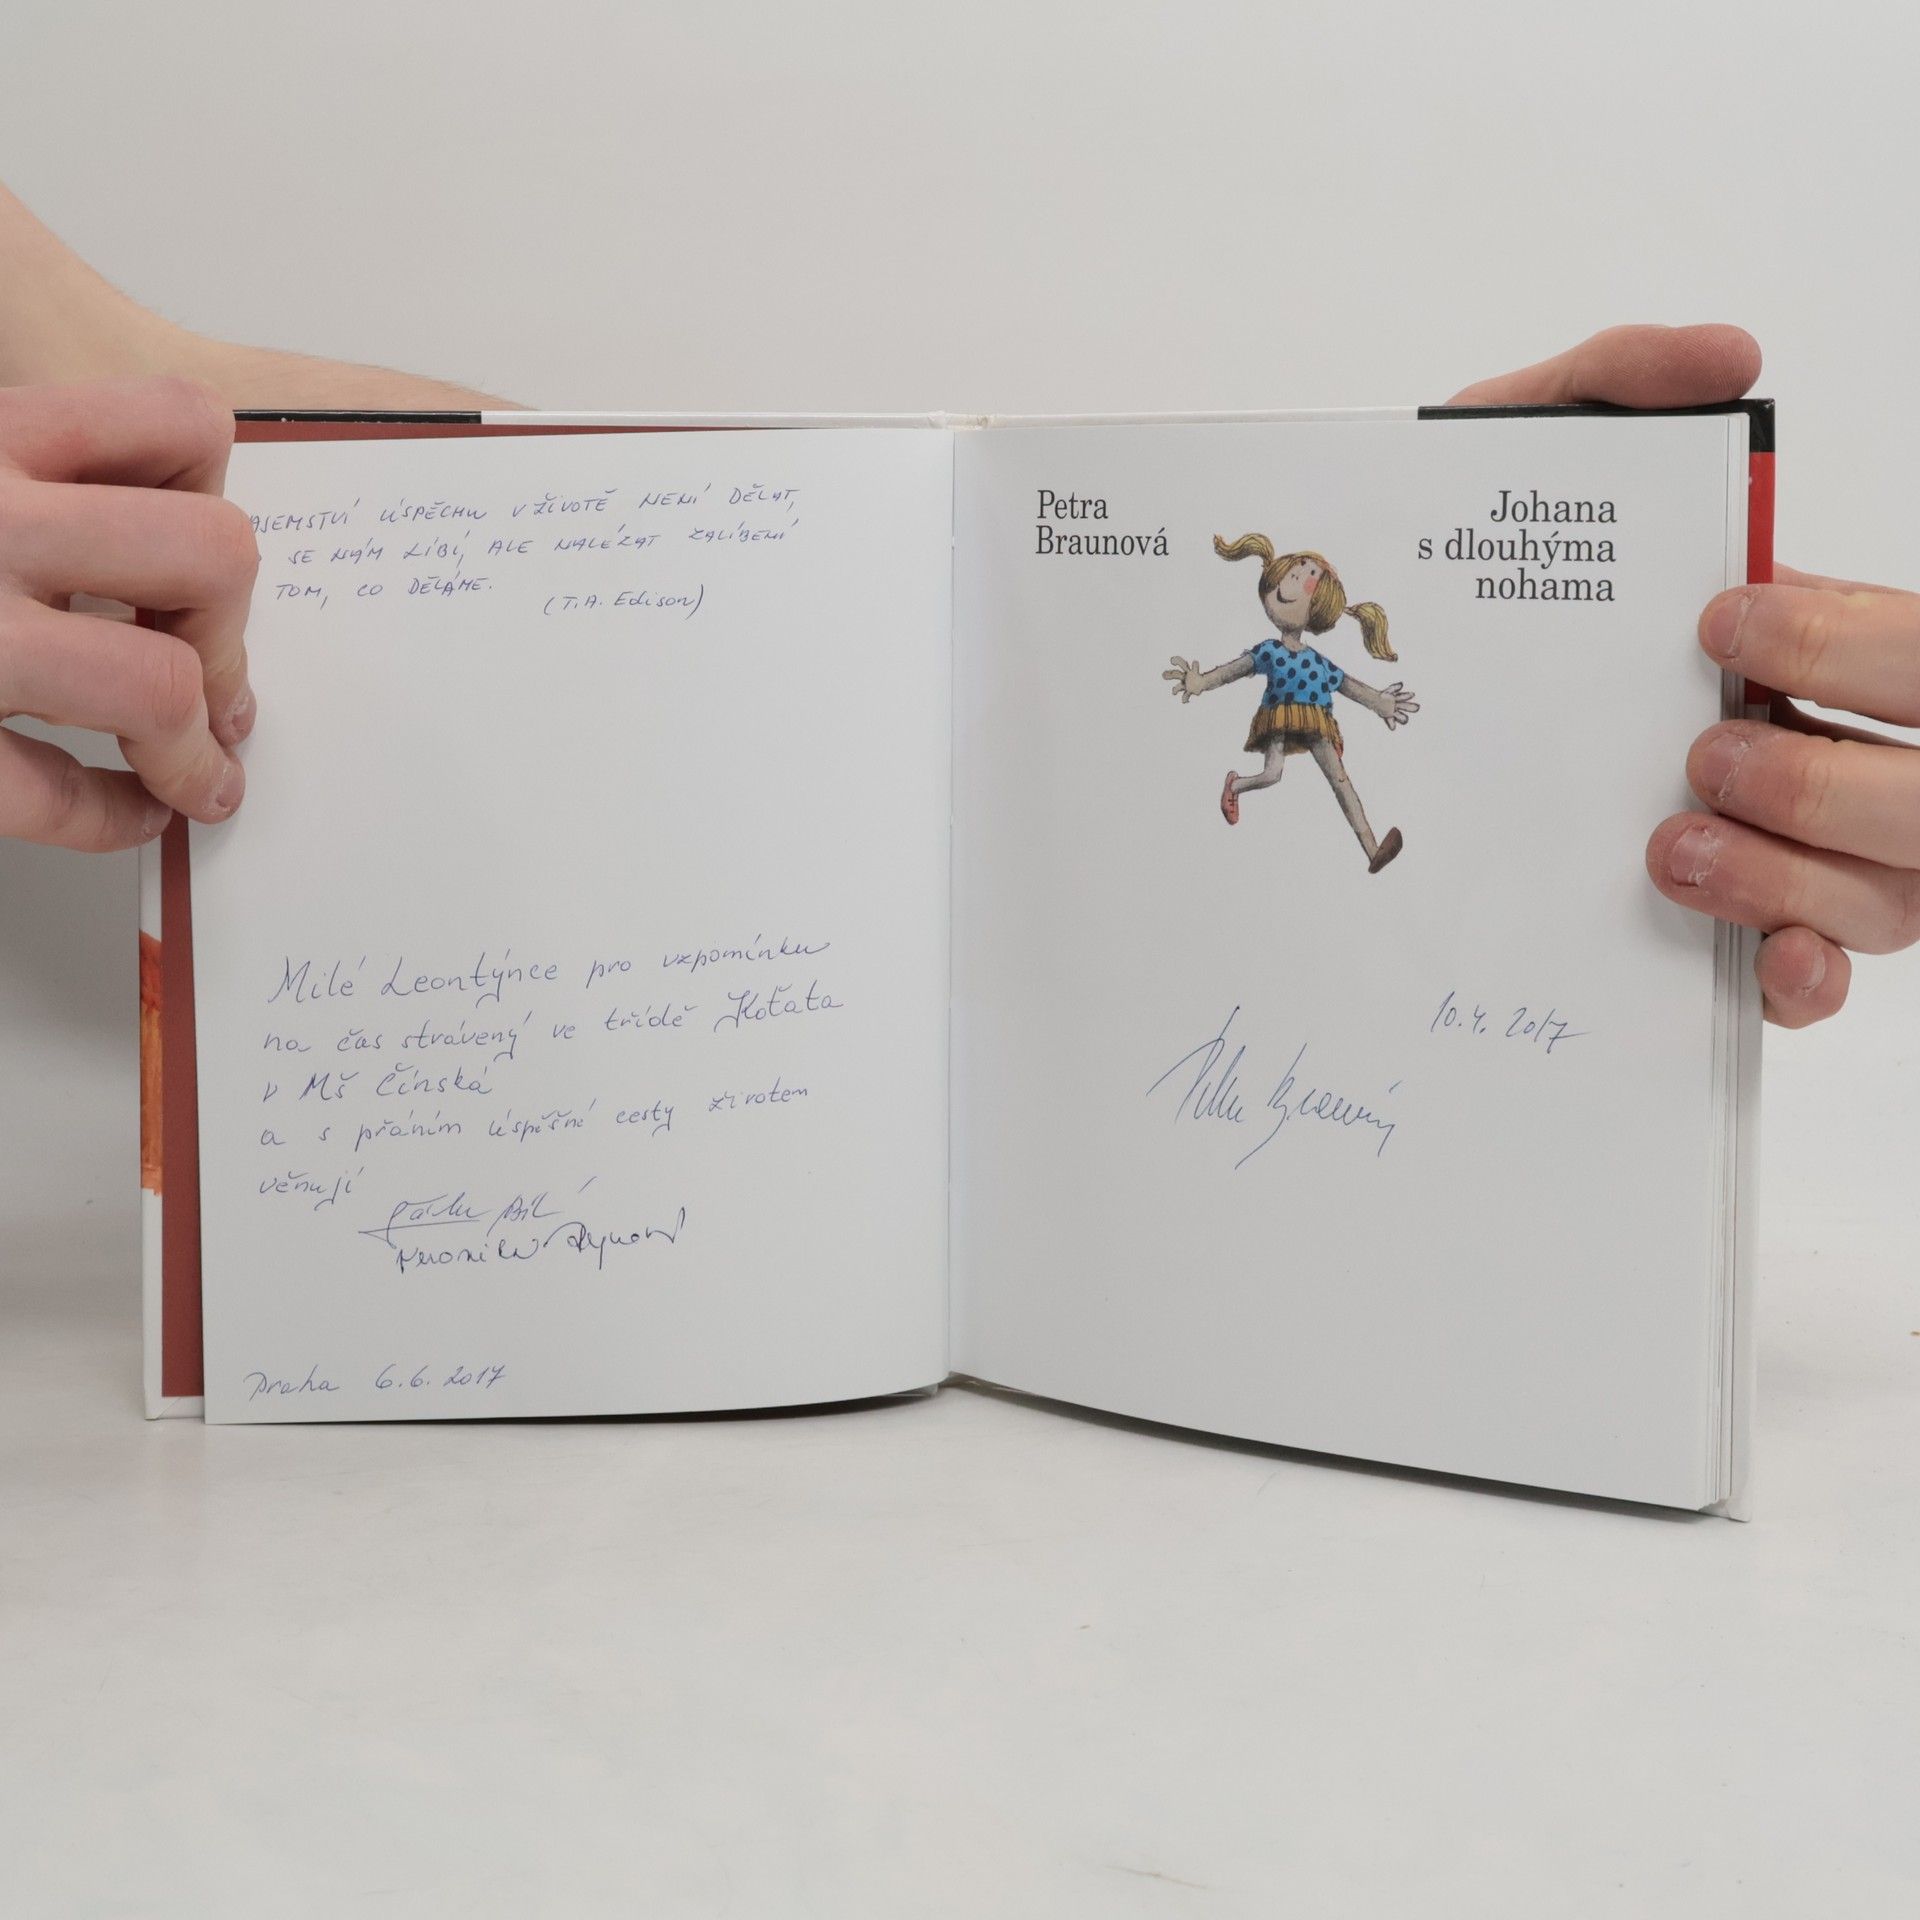 ÚSPĚCHU V ŽIVOTĚ NENÍ DĚLAT,
SE NÁM LÍBÍ, ALE NALÉZAT ZALÍBENÍ
TOM, CO DĚLÁME.
(T.A. Edison)
Milé Leontýnce pro vzpomínku
na čas strávený ve třídě Koťata
v MŠ Čínská
a s přáním úspěšné cesty životem
věnují
Veronika
Praha 6.6.2017
Petra
Braunová
Johana
s dlouhýma
nohama
10.4.2017